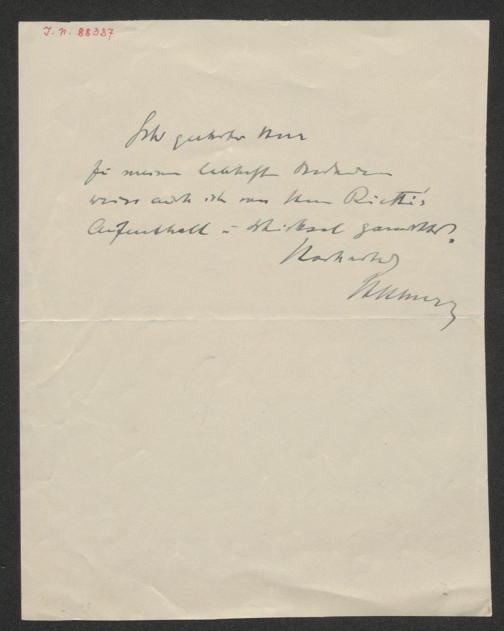 J. N. 88387
Sehr geehrter Herr
Zu meinem lebhaften Bedauern
weiss auch ich von Herrn Rietti's
Aufenthalt u Schicksal garnichts.
Hochachtend